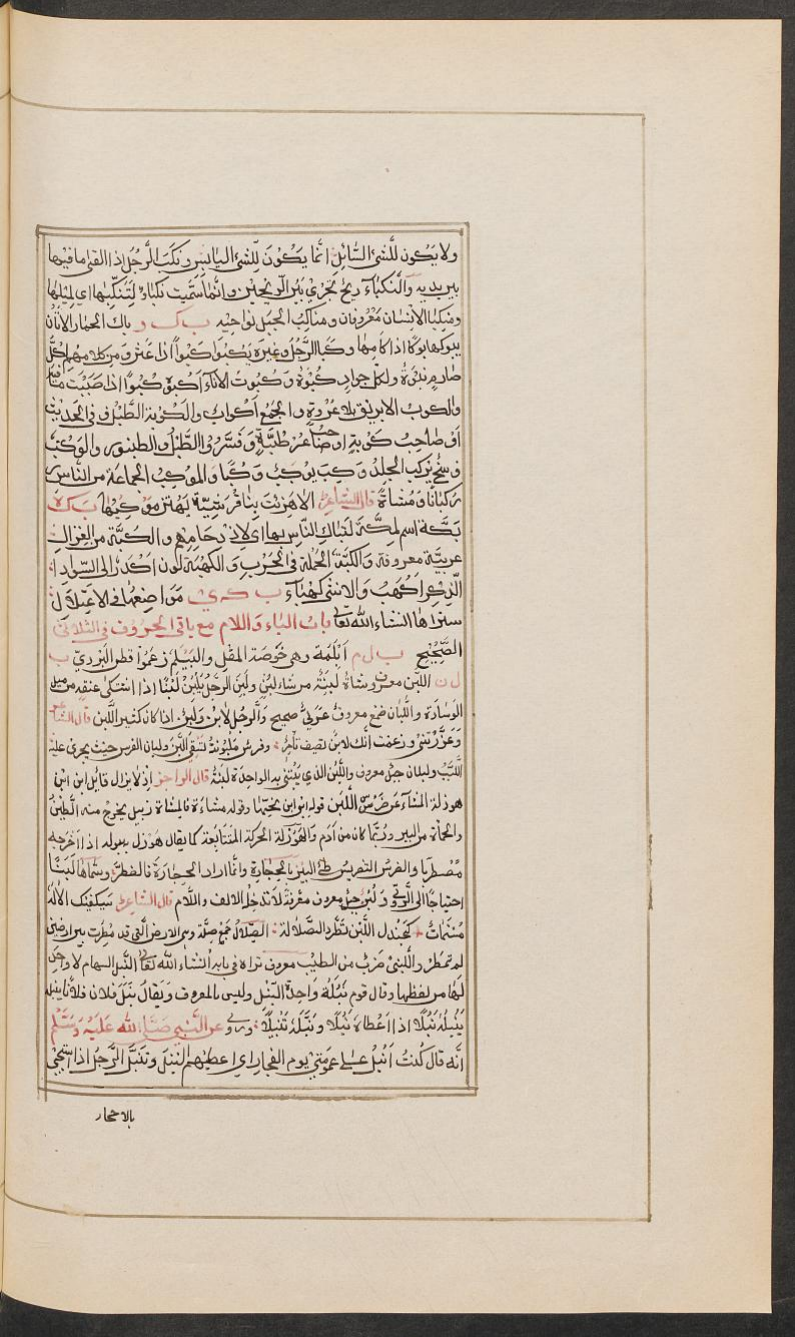 ولا يَكُون للشيء السَّائِل انّما يَكُونُ لِلشيءِ اليابسِ ونكبَ الرَّجُل اذا القى ما فيها
بين يديه وَالنَّكباءُ ريحٌ تجري بين الرّيحين وانّما سُمّيت نكباءَ لِتَنَكّبِها اى لميلها
ومنكبا الانسان مَعْروفان ومناكبُ الجبل نواحيه ب ك و باك الحمار الاتان
يبوكها بوكًا اذا كامها وكبا الرَّجُل وغيره يَكبُوا كَبْوًا اذا عَثر ومن كلامهم لكلّ
صارمٍ نبْوَةٌ ولكل جوادٍ كَبْوَة وكَبَوت الاناءَ اكبوه كَبْوًا اذا صَبَبْت ما فيه
والكوب الابريق بلا عُرْوة والجمع اكواب والكوبة الطّبْل و في الحديث
او صاحب كوبة او صاحب عرطبة وفسّروا الطّبْل والطنبور والوكب
وسخ يركب الجلد وكب يوكب وكبا والموكب الجماعة من الناس
ركبانًا ومُشاةً قال الشاعر الا هزئت بنا قرشيّة يهتزّ موكبها ب ك ه
بَكّة اسم لمكّة لتباك النّاس بها اى لازدحامهم والكُبّة من الغزال
عربيّة معروفة والكبّة الحملة في الحرب والكهبة لون اكدر الى السّواد
الذكر اكهب والانثى كهباء ب ك ى مواضعها في الاعتلال
ستراها انشاء الله تعالى باب الباء واللام مع باقي الحروف في الثلاثي
الصّحيح ب ل م ابلمة وهي خوصة المقل والبيلم زعموا قطن البردي ب
ل ن اللبن معروف وشاة لبنة من شاءٍ لبن ولبن الرجل يلبن لبنًا اذا اشتكى عنقه من ميل
الوسادة واللبان صمغ معروف عربي صحيح والرجل لابن ولبن اذا كان كثير اللبن قال الشاعر
وغررتني وزعمت انك لابن بالصيف تامر وفرس ملبونة تسقى اللبن ولبان الفرس حيث يجري عليه
اللبب ولبنان جبل معروف واللبن الذي يبتنى به الواحدة لبنة قال الراجز اذ لا يزال قائل ابن ابن
هوذلة المشآة عن ضرس اللبن قوله ابن ابن نحيها وقوله مشاءة فالمشاة زبيل يخرج منه الطين
والحماة من البير وربما كان من ادم والهوذلة الحركة المتتابعة كما يقال هوذل ببوله اذا اخرجه
مضطربا والضرس التضريس طي البير بالحجارة وانما اراد الحجارة فاضطرّ وسماها لبنًا
احتياجًا الى الروي ولبن جبل معروف معرفة لا تدخل الالف واللام قال الشاعر سيكفيك الاله
مسنمات كجندل اللبن تطرد الصلالة الصلال جمع صلة وهي الارض التي قد مطرت بين ارضين
لم تمطر واللبنى ضرب من الطيب معروف تراه في بابه انشاء الله تعالى النبل السهام لا واحد
لها من لفظها وقال قوم نبلة واحدة النبل وليس بالمعروف ويقال نبل فلان فلانا ينبله
ينبله نبلًا اذا اعطاه نبلا ونبّله تنبيلًا وروى عن النبي صلى الله عليه وسلم
انه قال كنت انبل على عمومتي يوم الفجار اى اعطيهم النبل وتنبّل الرجل اذا استنجى
بالاحجار